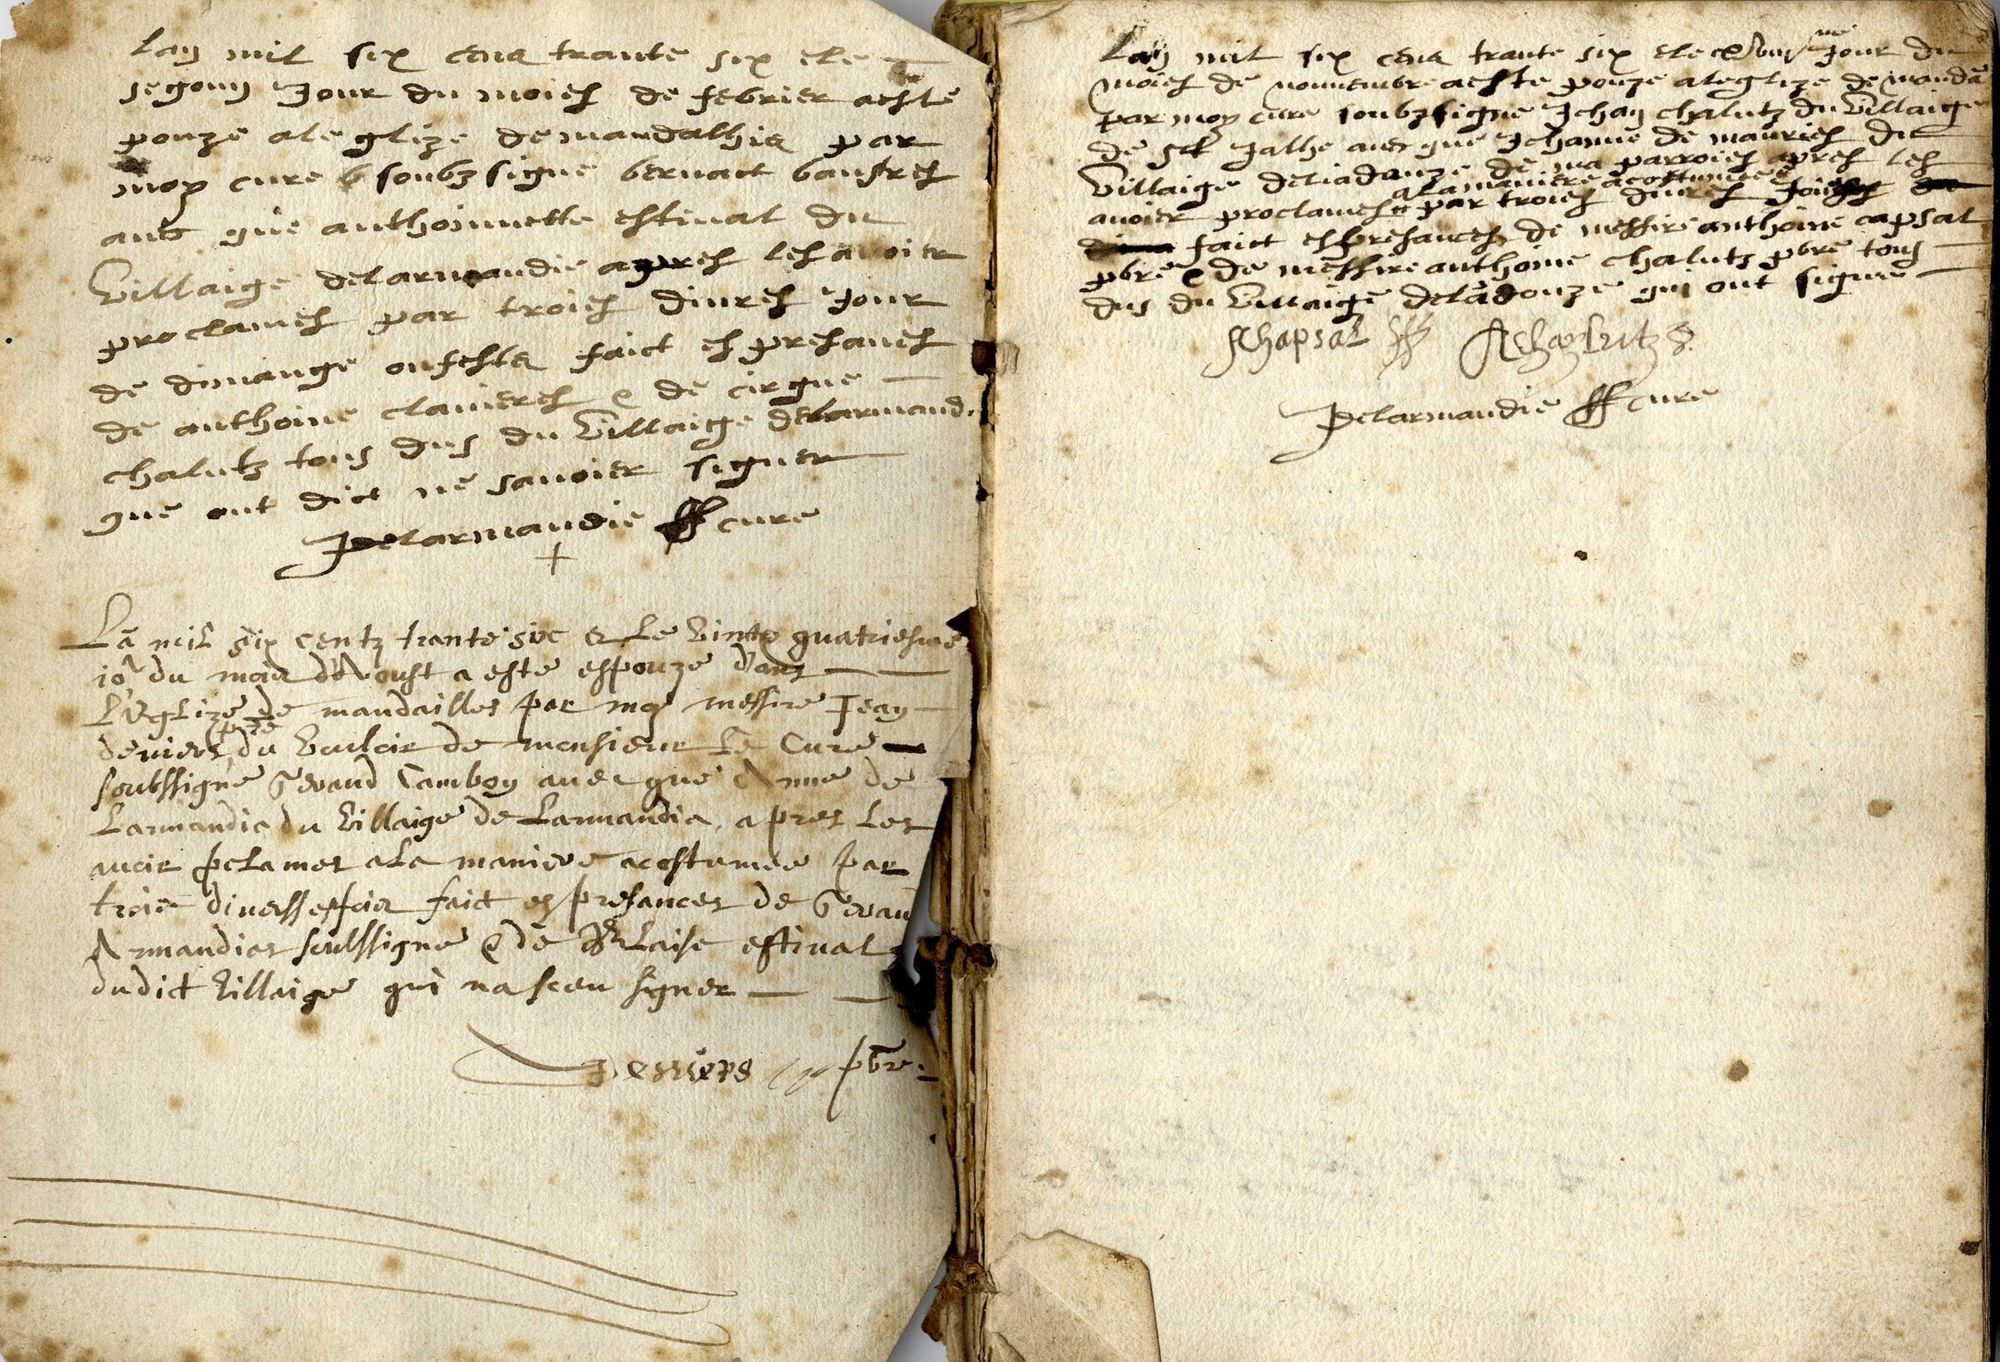 Lan mil six cens trante six et le
segong Jour du moies de febrier a este
pouze a leglize de mandalhia par
moy cure soubzsigne bernact
avec que anthoinnette estival du
Villaige de larmandie apres les avoier
proclames par troies divres Jour
de dimange ou festa faict es presances
de anthoine clavieres & de cirgue
chalutz tous dus du Villaige de larmand.
que ont dict ne savoier signer
Delarmandie cure
Lā mil six centz trante six & le vinte quatriesme
jor du mois d'Avoust a este espouze dans
L'Eglize de mandailles par moy messire Jean
deviers pbre du vouloir de monsieur Le Cure
soubssigne Geraud Cambon avecque Anne de
Larmandia du villaige de Larmandia, apres les
avoir pclames a La maniere acostumee par
trois diversses fois faict es presances de Geraud
Armandies soubssigne & de Blaise estival
dudict villaige qui na sceu signer
Deviers pbre
Lan mil six cens trante six et le Jour du
moies de nouvembre a este pouze a leglize de manda
par moy cure soubzsigne Jehan chalutz du Villaige
de St Jalhe avec que Jehanne de mauries du
Villaige de liadouze de ma parroies apres les
a la maniere acostumee
avoier proclames par troies divres foies
faict es presances de messire anthoine capsal
pbre & de messire anthoine chalutz pbre tous
dus du Villaige de ladouze qui ont signe
AChapsal AChalutz
Delarmandie cure